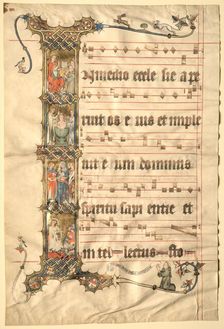 In medio eccle sie ape
runt os e ius et imple
uit e um dominus
spiritu sapi entie et
in tel lectus sto